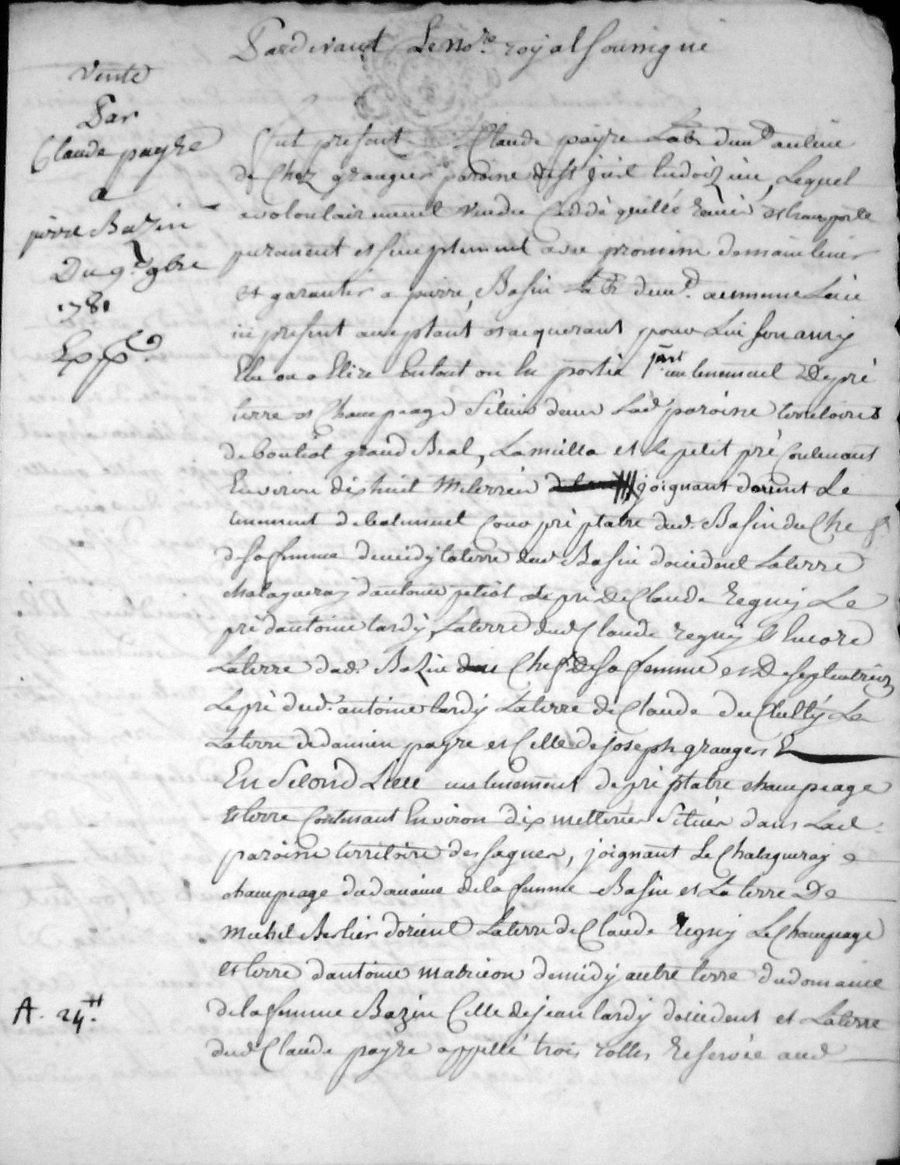 Pardevant Le no.re royal soussigné
vente
Par
Claude payre
a
pierre Bazin
Du 9.e 9bre
1781
Exp.ée
fut présent Claude payre Lab.r dud. au lieu
de chez granger paroisse de st just Lequel
a volontairement vendu Cedé quitté remis et transporté
purement et simplement avec promesse de maintenir
et garantir a pierre Basin Lab.r dem.t au meme Lieu
ici present acceptant et acquerant pour Lui Son amy
Elu ou a Elire En tout ou En partie p.mt un tenement de pré
terre et Champeage Situés dans Lad. paroisse territoires
de boutiot grand Beal, Lamilla et Le petit pré Contenant
Environ dix huit Metérées joignant d'orient Le
tenement de batiment Cour pré patre dud. Basin du Chef
de sa femme de midy la terre dud. Basin d'occident La terre
chalagueray d'antoine petiot Le pré de Claude regny Le
pré d'antoine tardy, La terre dud. Claude regny & Encore
La terre dud. Bazin Chef de sa femme et De septentrion
Le pré dud. antoine tardy La terre de Claude
La terre de damien payre et Celle de joseph granger &
En Second Lieu un tenement de pré patre champeage
et terre Contenant Environ dix metterées Situés dans Lad.
paroisse territoire des sagnes, joignant Le Chalagueray &
champeage du domaine de la femme Basin et La terre De
Michel Berlier d'orient La terre de Claude Regny Le Champeage
et terre d'antoine matricon de midy autre terre du domaine
de la femme Bazin Celle de jean tardy d'occident et La terre
dud. Claude payre appellé trois rolles Reservée aud.
A. 24.tt